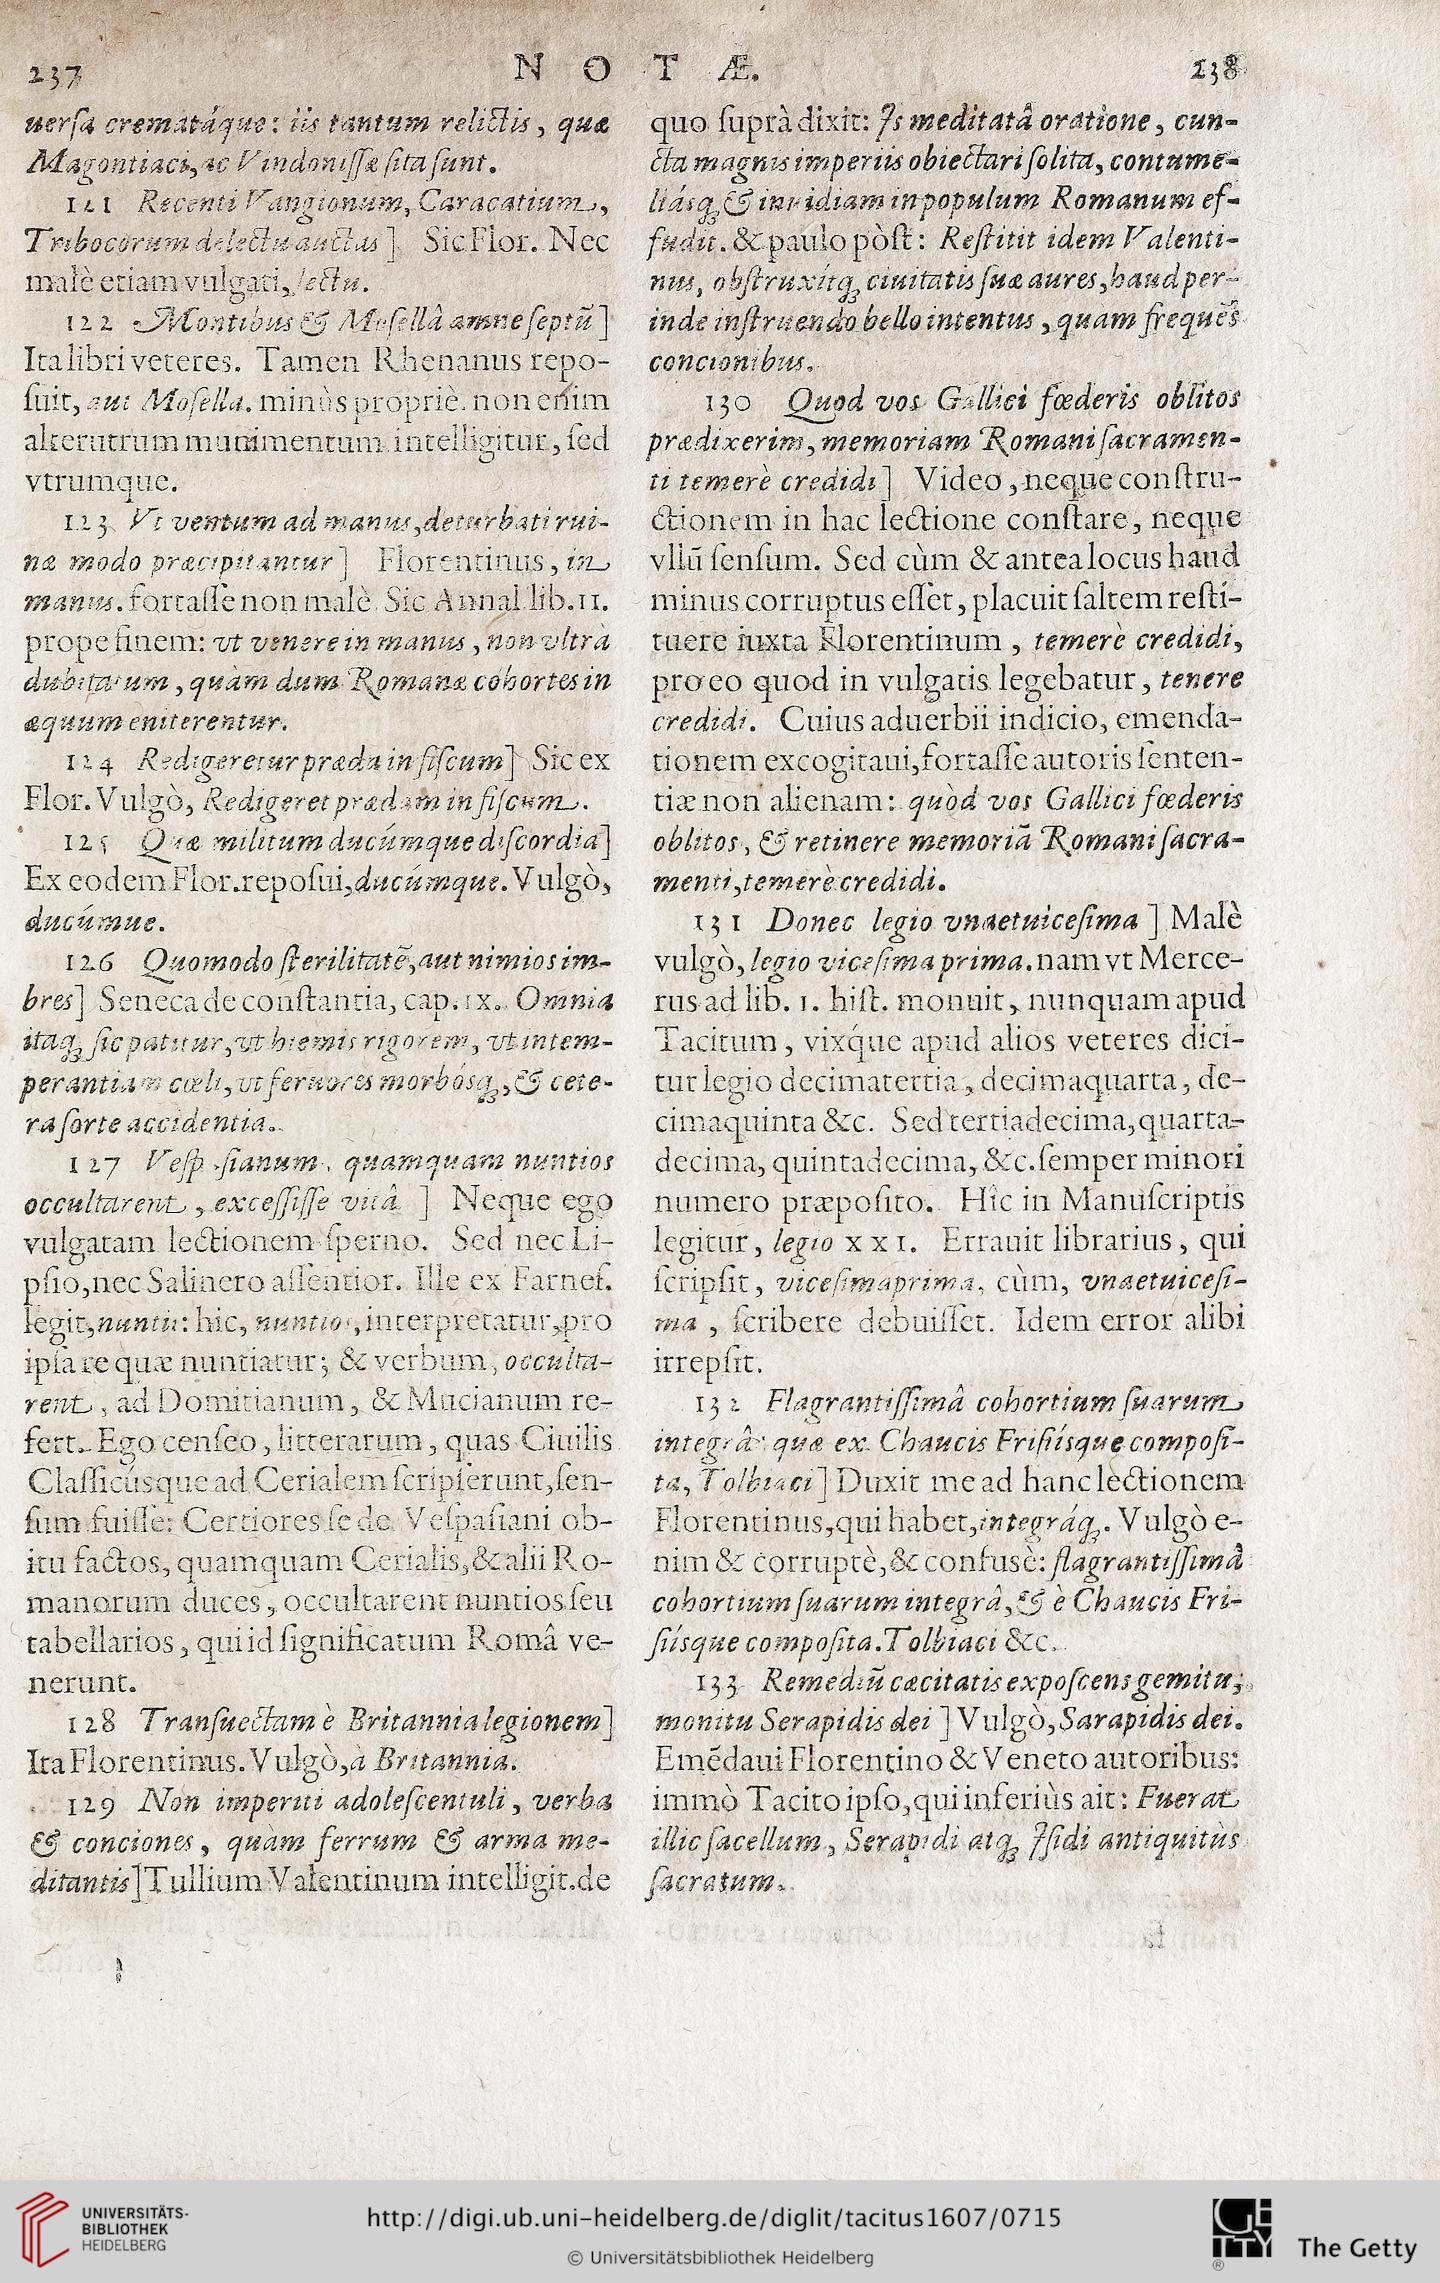 237
NOTÆ.
238
uersa crematáque: iis tantum relictis, quæ
Magontiaci, ac Vindonissæ sita sunt.
121 Recenti Vangionum, Caracatium,
Tribocorum delectu auctas] Sic Flor. Nec
malè etiam vulgati, lectu.
122 Montibus & Mosellâ amne septū]
Ita libri veteres. Tamen Rhenanus repo-
suit, aut Mosella. minùs propriè. non enim
alterutrum munimentum intelligitur, sed
vtrumque.
123 Vt ventum ad manus, deturbati rui-
næ modo præcipitantur] Florentinus, in
manus. fortasse non malè. Sic Annal. lib. 11.
prope finem: vt venere in manus, non vltrà
dubitatum, quàm dum Romanæ cohortes in
æquum eniterentur.
124 Redigeretur præda in fiscum] Sic ex
Flor. Vulgò, Redigeret prædam in fiscum.
125 Quæ militum ducúmque discordia]
Ex eodem Flor. reposui, ducúmque. Vulgò,
ducúmue.
126 Quomodo sterilitatē, aut nimios im-
bres] Seneca de constantia, cap. ix. Omnia
itaq; sic patitur, vt hiemis rigorem, vt intem-
perantiam cœli, vt feruores morbósq;, & cete-
ra sorte accidentia.
127 Vespasianum, quamquam nuntios
occultarent, excessisse vitâ] Neque ego
vulgatam lectionem sperno. Sed nec Li-
psio, nec Salinero assentior. Ille ex Farnes.
legit, nuntii: hic, nuntios, interpretatur, pro
ipsa re quæ nuntiatur; & verbum, occulta-
rent, ad Domitianum, & Mucianum re-
fert. Ego censeo, litterarum, quas Ciuilis
Classicúsque ad Cerialem scripserunt, sen-
sum fuisse: Certiores se de Vespasiani ob-
itu factos, quamquam Cerialis, & alii Ro-
manorum duces, occultarent nuntios seu
tabellarios, qui id significatum Româ ve-
nerunt.
128 Transuectam è Britannia legionem]
Ita Florentinus. Vulgò, à Britannia.
129 Non imperiti adolescentuli, verba
& conciones, quàm ferrum & arma me-
ditantis] Tullium Valentinum intelligit. de
quo suprà dixit: Is meditatâ oratione, cun-
cta magnis imperiis obiectari solita, contume-
liásq; & inuidiam in populum Romanum ef-
fudit. & paulo pòst: Restitit idem Valenti-
nus, obstruxítq; ciuitatis suæ aures, haud per-
inde instruendo bello intentus, quam frequēs
concionibus.
130 Quod vos Gallici fœderis oblitos
prædixerim, memoriam Romani sacramen-
ti temerè credidi] Video, neque constru-
ctionem in hac lectione constare, neque
vllū sensum. Sed cùm & antea locus haud
minus corruptus esset, placuit saltem resti-
tuere iuxta Florentinum, temerè credidi,
pro eo quod in vulgatis legebatur, tenere
credidi. Cuius aduerbii indicio, emenda-
tionem excogitaui, fortasse autoris senten-
tiæ non alienam: quòd vos Gallici fœderis
oblitos, & retinere memoriā Romani sacra-
menti, temerè credidi.
131 Donec legio vnaetuicesima] Malè
vulgò, legio vicesima prima. nam vt Merce-
rus ad lib. 1. hist. monuit, nunquam apud
Tacitum, vixque apud alios veteres dici-
tur legio decimatertia, decimaquarta, de-
cimaquinta &c. Sed tertiadecima, quarta-
decima, quintadecima, &c. semper minori
numero præposito. Hîc in Manuscriptis
legitur, legio xxi. Errauit librarius, qui
scripsit, vicesimaprima, cùm, vnaetuicesi-
ma, scribere debuisset. Idem error alibi
irrepsit.
132 Flagrantissimâ cohortium suarum
integrâ: quæ ex Chaucis Frisiísque composi-
ta, Tolbiaci] Duxit me ad hanc lectionem
Florentinus, qui habet, integráq;. Vulgò e-
nim & corruptè, & confusè: flagrantissimâ
cohortium suarum integrâ, & è Chaucis Fri-
siísque composita. Tolbiaci &c.
133 Remediū cæcitatis exposcens gemitu;
monitu Serapidis dei] Vulgò, Sarapidis dei.
Emēdaui Florentino & Veneto autoribus:
immò Tacito ipso, qui inferiùs ait: Fuerat
illic sacellum, Serapidi atq; Isidi antiquitùs
sacratum.
UNIVERSITÄTS-
BIBLIOTHEK
HEIDELBERG
http://digi.ub.uni-heidelberg.de/diglit/tacitus1607/0715
© Universitätsbibliothek Heidelberg
GETTY
The Getty